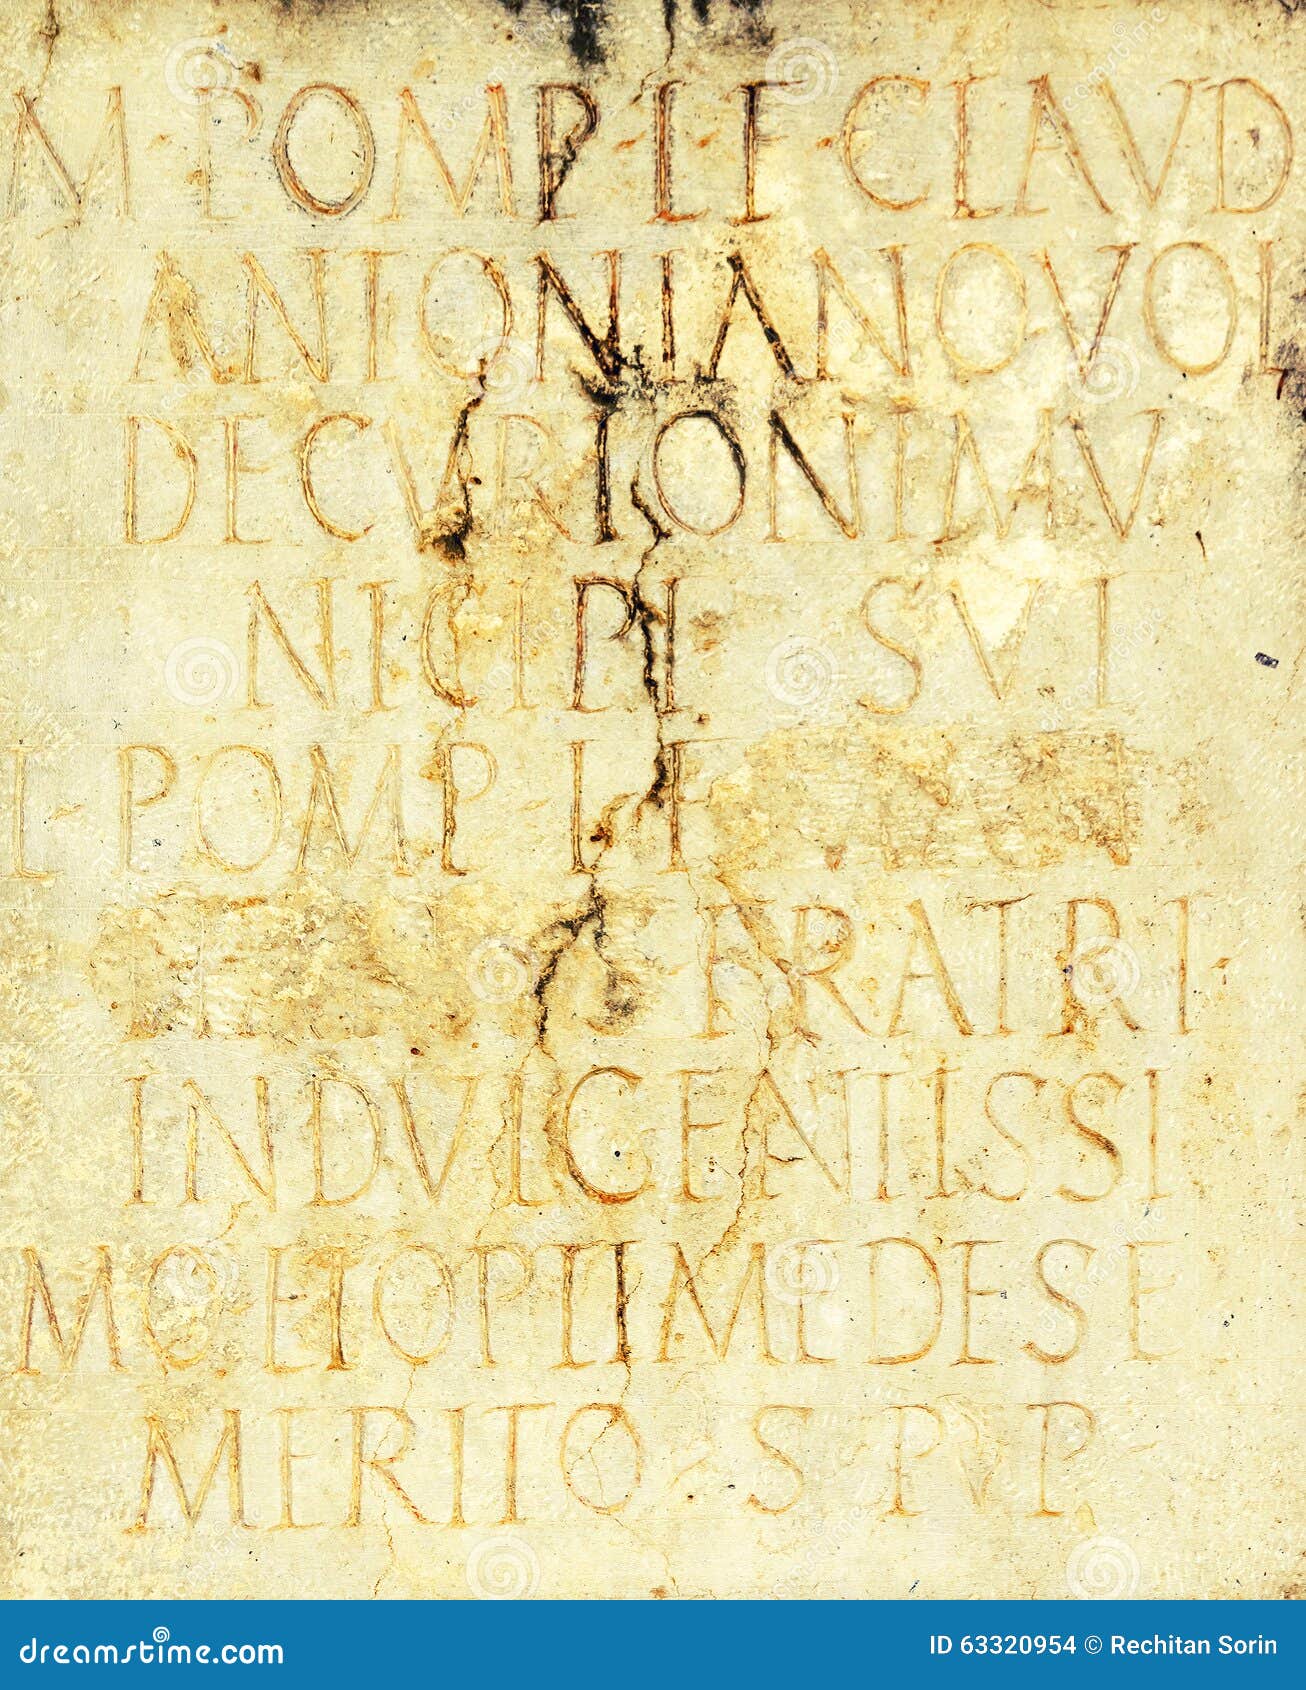 M · POMP · L · F · CLAVD
ANTONIANO VOL
DECVRIONI MV
NICIPI SVI
L · POMP · L · F
FRATRI
INDVLGENTISSI
MO ET OPTIME DE SE
MERITO · S · P · P ·
dreamstime.com
ID 63320954 © Rechitan Sorin